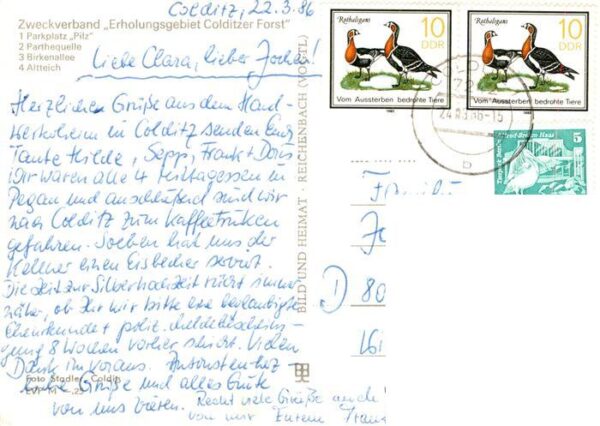 Colditz, 22.3.86
Zweckverband „Erholungsgebiet Colditzer Forst"
1 Parkplatz „Pilz"
2 Parthequelle
3 Birkenallee
4 Altteich
Liebe Clara, lieber Jochen!
Herzlichen Grüße aus dem Hand-
werksheim in Colditz senden Euch
Tante Hilde, Sepp, Frank + Doris
Wir waren alle 4 Mittagessen in
Pegau und anschließend sind wir
nach Colditz zum Kaffeetrinken
gefahren. Soeben hat uns der
Kellner einen Eisbecher serviert.
Die Zeit zur Silberhochzeit rückt immer
näher, ob Ihr mir bitte eine beglaubigte
Eheurkunde + polit.
8 Wochen vorher schickt. Vielen
Dank im Voraus.
liche Grüße und alles Gute
von uns vieren. Recht viele Grüße auch
von mir Eurem
Foto Stadler, Colditz
BILD UND HEIMAT · REICHENBACH (VOGTL)
Rothalsgans
10
DDR
Vom Aussterben bedrohte Tiere
Rothalsgans
10
DDR
Vom Aussterben bedrohte Tiere
5
Tierpark Berlin
Alfred-Brehm-Haus
DDR
b
Famili
D
80